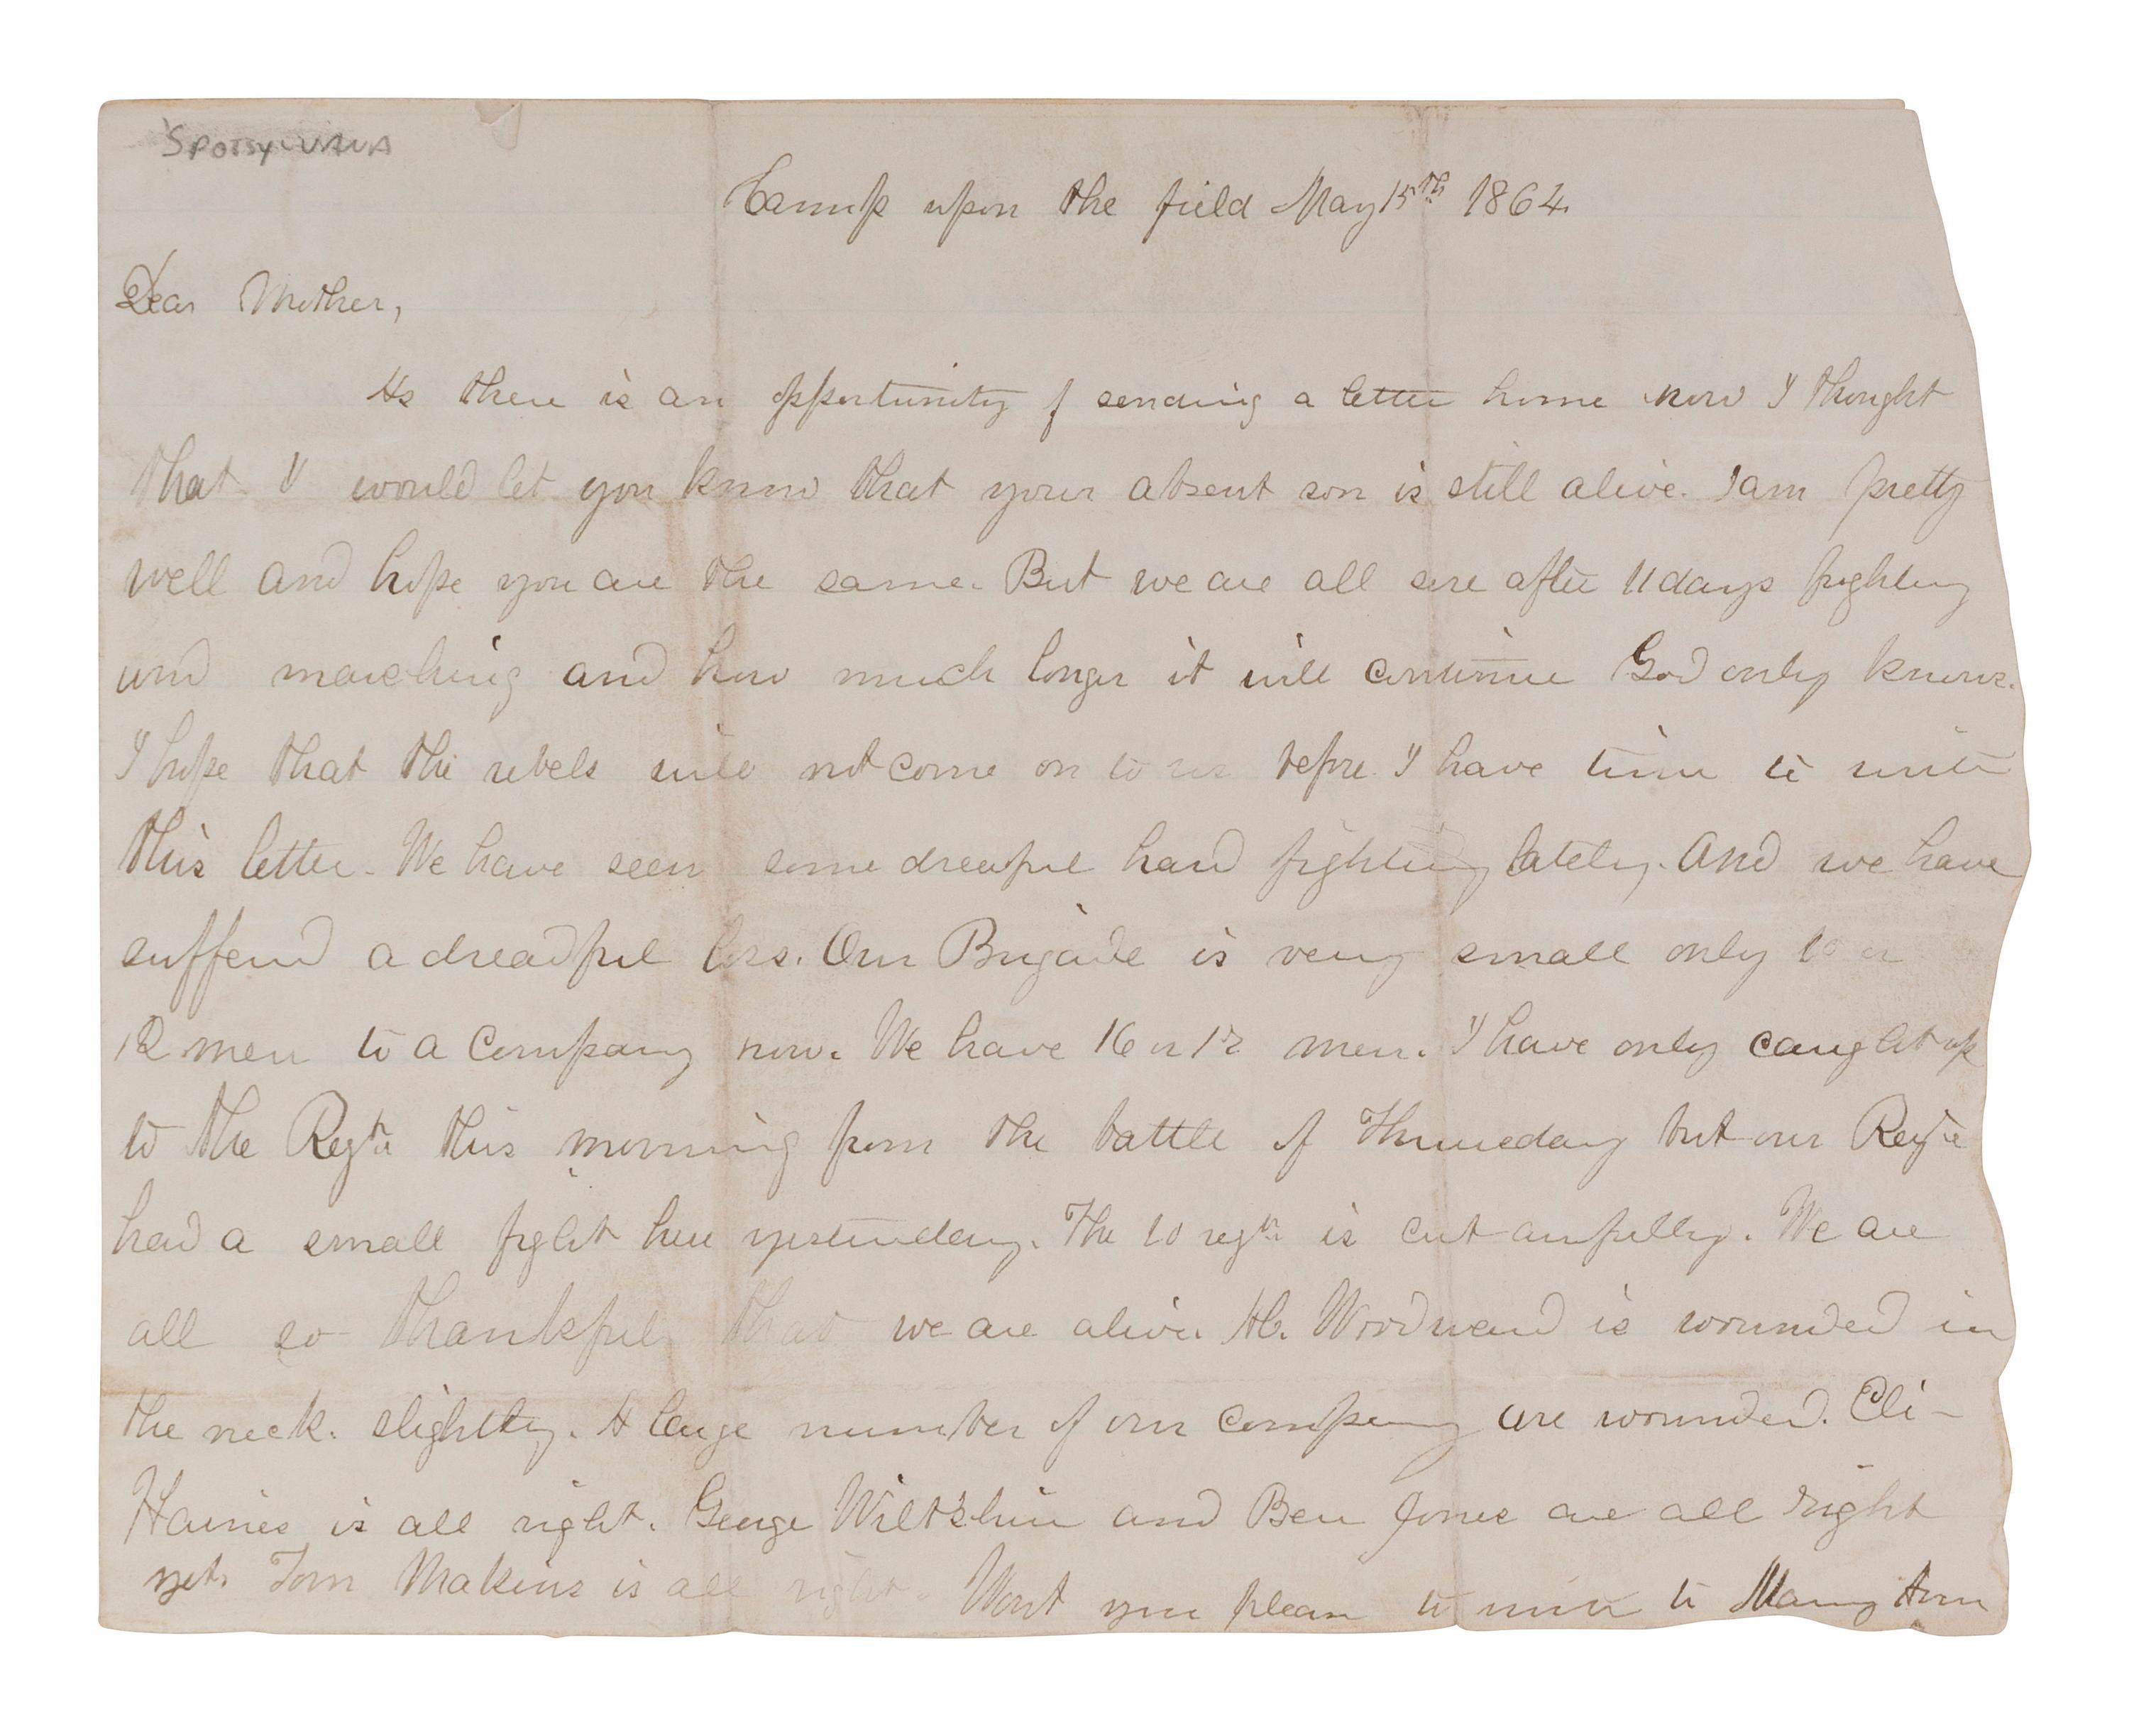 SPOTSYLVANIA
Camp upon the field May 15th 1864.
Dear Mother,
As there is an opportunity of sending a letter home now I thought
that I would let you know that your absent son is still alive. I am pretty
well and hope you are the same. But we are all sore after 11 days fighting
and marching and how much longer it will continue God only knows.
I hope that the rebels will not come on to us before I have time to write
this letter. We have seen some dreadful hard fighting lately. And we have
sufferd a dreadful loss. Our Brigade is very small only 10 or
12 men to a Company now. We have 16 or men. I have only caught up
to the Regt this morning from the battle of Thursday but our Regt
had a small fight here yesterday. The 10 regt is cut awfully. We are
all so thankful that we are alive. Woodward is wounded in
the neck. slightly. A large number of our company are wounded. Eli
Haines is all right. George Wiltshire and Ben Jones are all right
yet. Tom Makins is all right. Wont you please to write to Mary Ann